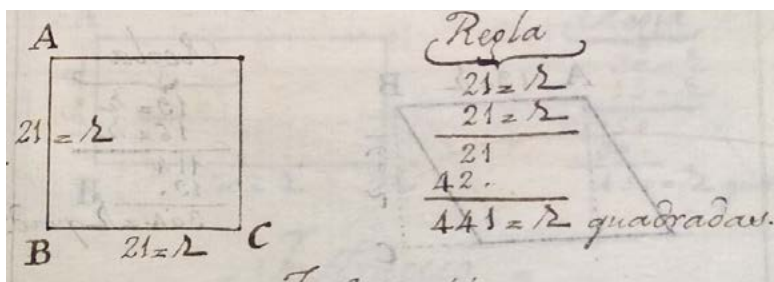 A
21 = 2
B
21=2
C
Regla
21 = 2
21 = 2
21
42.
441 = 2 quadradas.